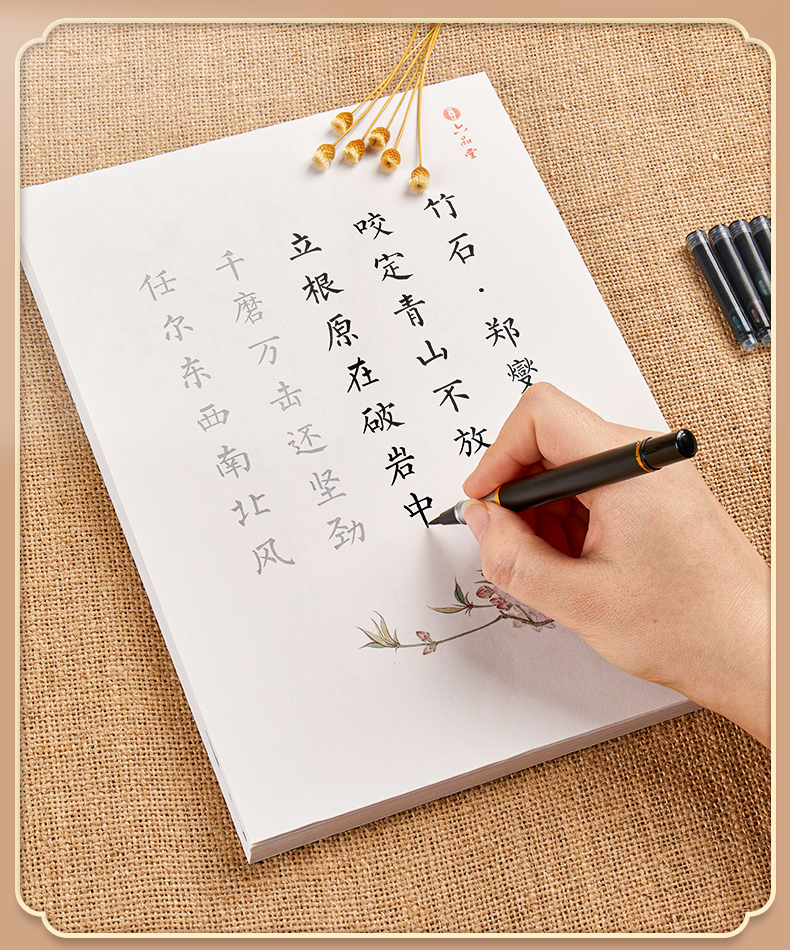 竹石·郑燮
咬定青山不放
立根原在破岩中
千磨万击还坚劲
任尔东西南北风
六品堂